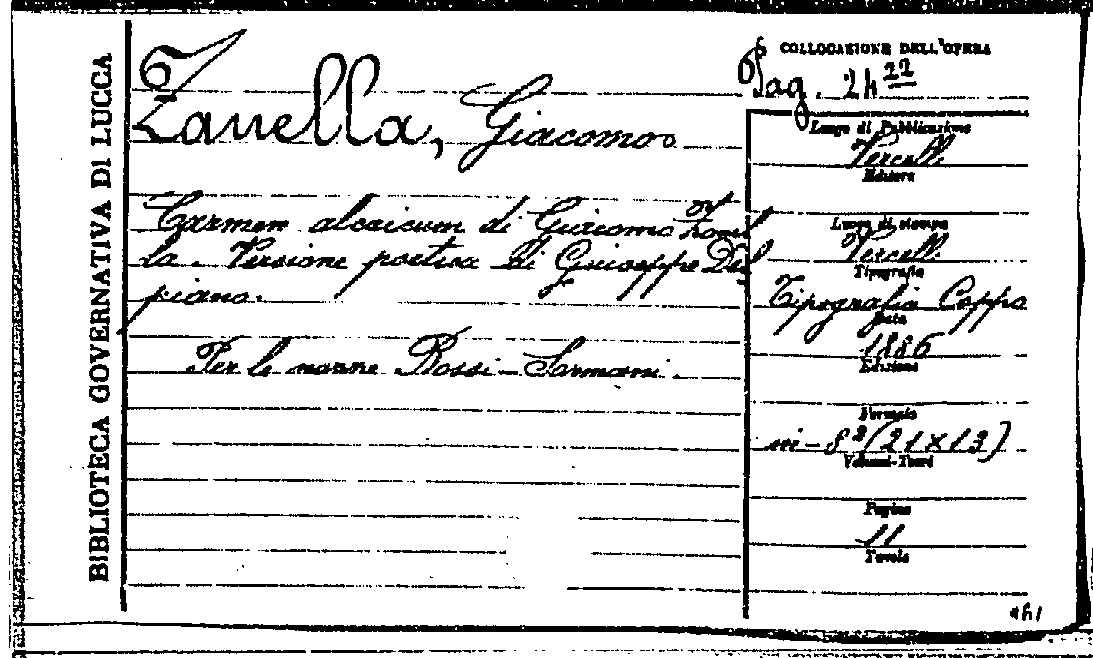 BIBLIOTECA GOVERNATIVA DI LUCCA
Zanella, Giacomo
Carmen alcaicum di Giacomo Zanel
la. Versione poetica di Giuseppe Del
piano.
Per le nozze Rossi-Sormani.
COLLOCAZIONE DELL'OPERA
24 22
Luogo di Pubblicazione
Vercelli
Editore
Luogo di stampa
Vercelli
Tipografia
Tipografia Coppo
Data
1886
Edizione
Formato
in-8º (21x13)
Volumi-Tomi
Pagine
11
Tavole